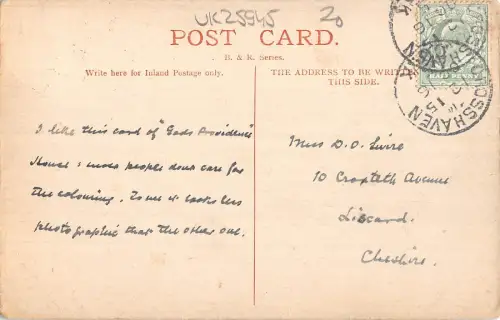 UK25945 20
POST CARD.
B. & R. Series.
Write here for Inland Postage only.
THE ADDRESS TO BE WRIT
THIS SIDE.
HALF PENNY
MOSSHAVEN
I like this card of "Gods Providence
House": most people don't care for
the colouring. To me it looks less
photographic than the other one.
Miss D. O.
10 Croxteth Avenue
Liscard.
Cheshire.